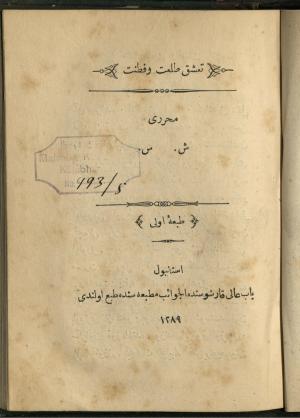 تعشق طلعت وفطنت
محرری
ش. س.
993/5
طبعهٔ اولی
استانبول
باب عالی قارشوسنده الجوائب مطبعه سنده طبع اولندی
١٢٨٩